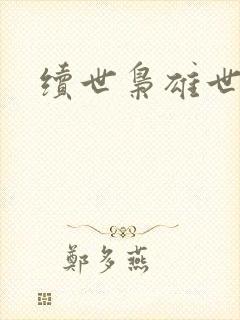 續世梟雄世
鄭多燕